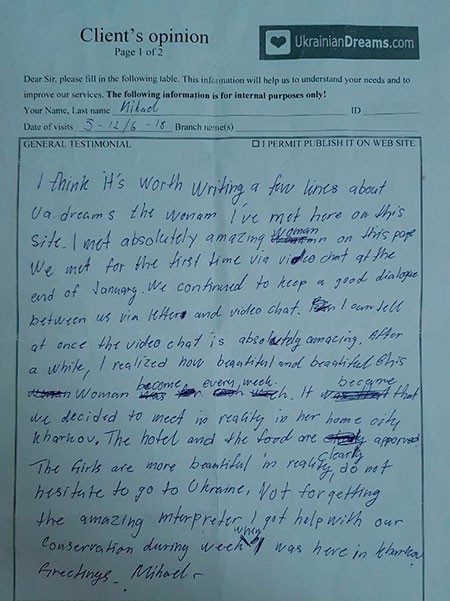 Client's opinion
Page 1 of 2
UkrainianDreams.com
Dear Sir, please fill in the following table. This information will help us to understand your needs and to
improve our services. The following information is for internal purposes only!
Your Name, Last name Mikael ID
Date of visits 5-12/6-18 Branch name(s)
GENERAL TESTIMONIAL ☐ I PERMIT PUBLISH IT ON WEB SITE
I think it's worth writing a few lines about
Ua.dreams the woman I've met here on this
Site. I met absolutely amazing woman on this page
We met for the first time via video chat at the
end of January. We continued to keep a good dialogue
between us via letters and video chat. I can tell
at once the video chat is absolutely amazing. After
a while, I realized how beautiful and beautiful this
Woman become every week. It became that
we decided to meet in reality in her home city
Kharkov. The hotel and the food are clearly approved
The Girls are more beautiful in reality, do not
hesitate to go to Ukraine. Not forgetting
the amazing interpreter I got help with our
Conservation during week when I was here in Kharkov
Greetings - Mikael -